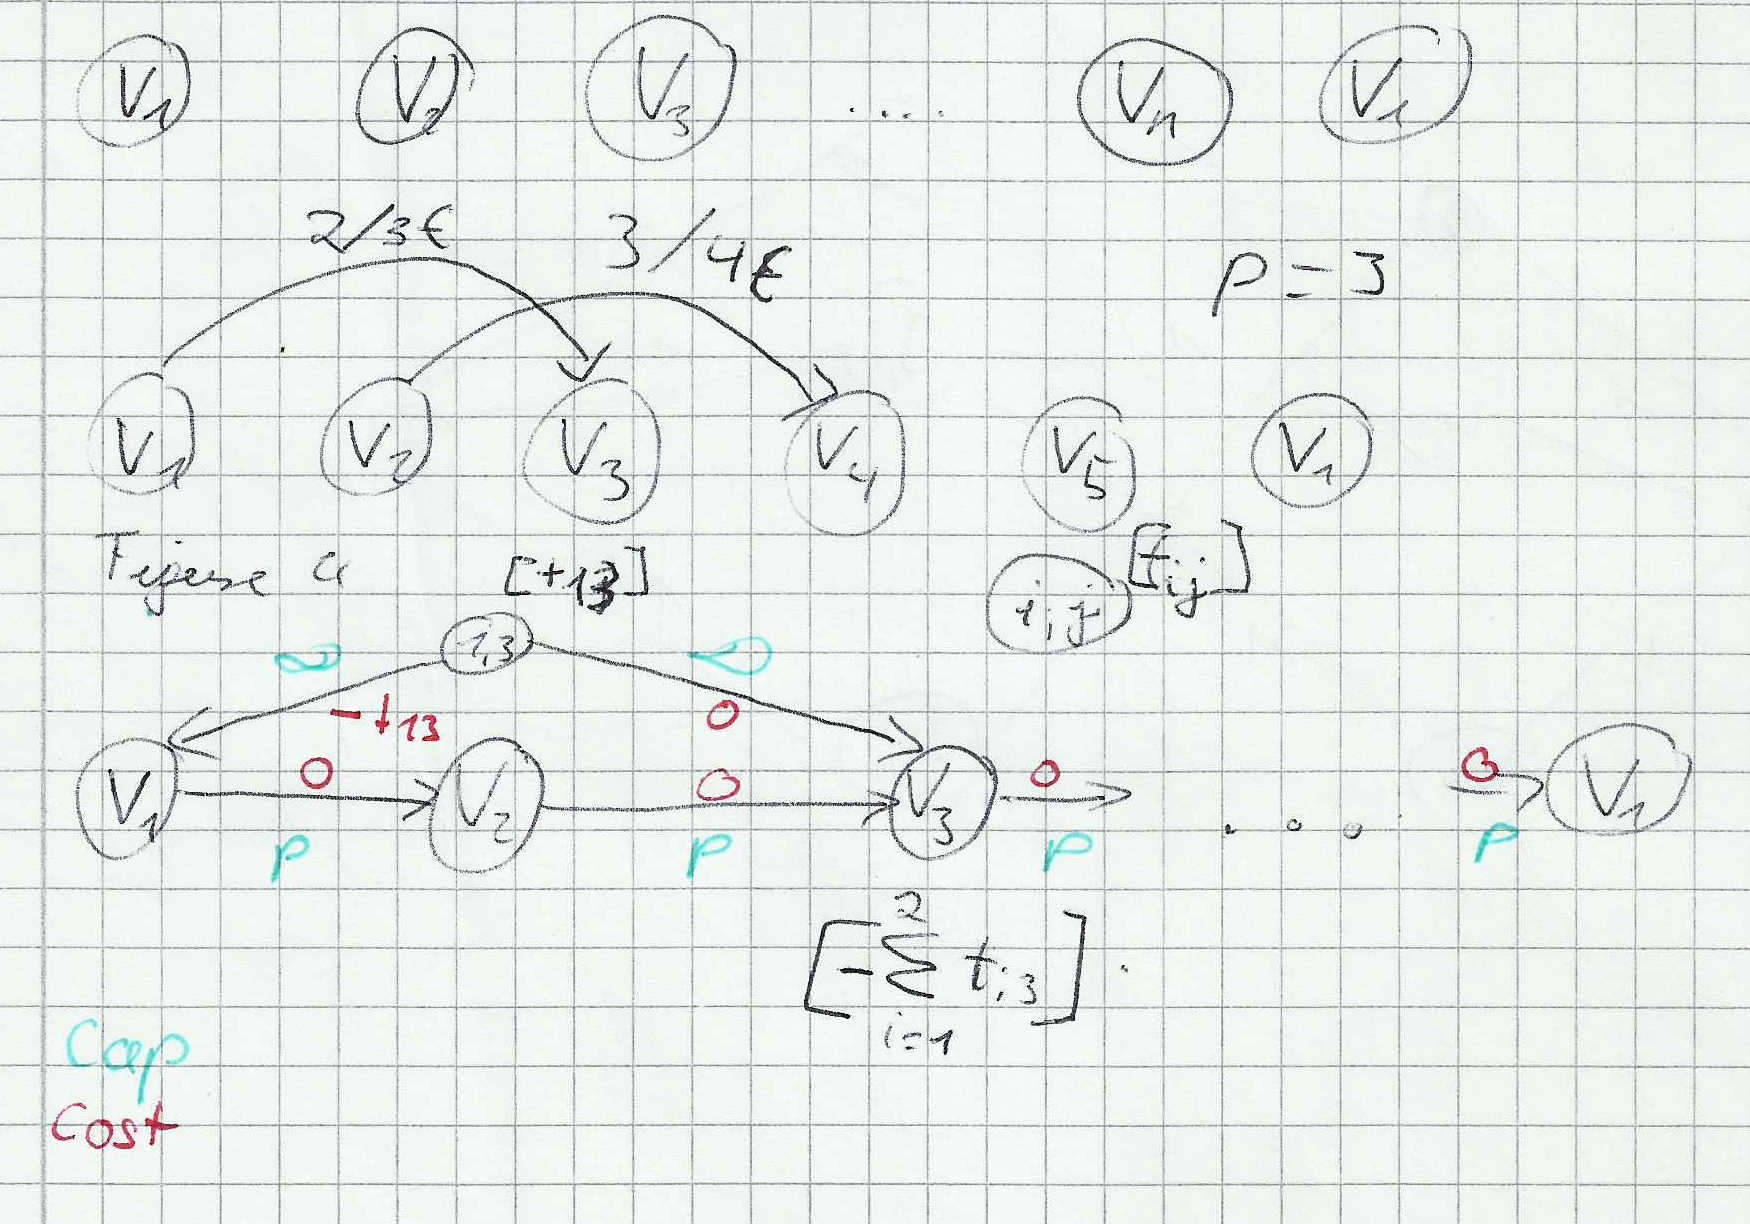 V₁ V₂ V₃ .... Vₙ V₁
2/3€ 3/4€
p = 3
V₁ V₂ V₃ V₄ V₅ V₁
[t13] i,j [tij]
1,3
∞ ∞
-t13 0
V₁ 0 V₂ 0 V₃ 0 ... 0 V₁
p p p p
[-∑ i=1 2 ti3]
Cap
Cost